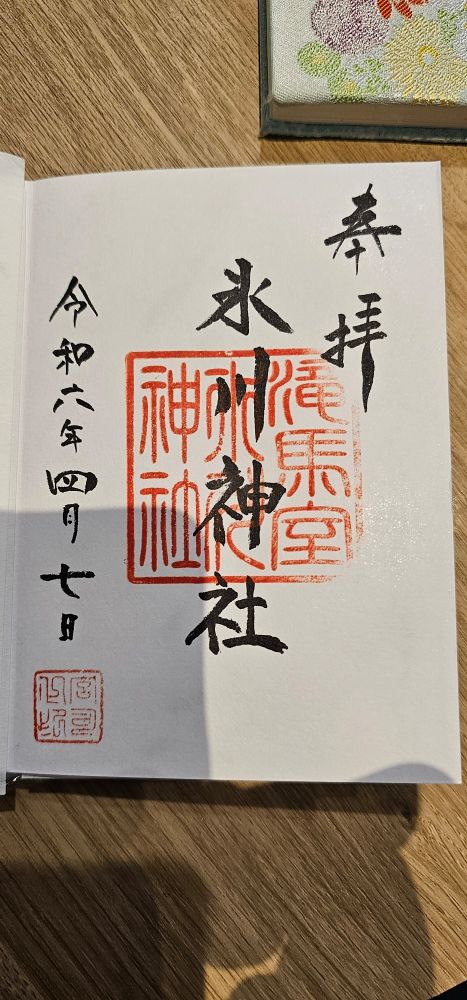 奉拝
氷川神社
滝馬室
氷川
神社
令和六年四月七日